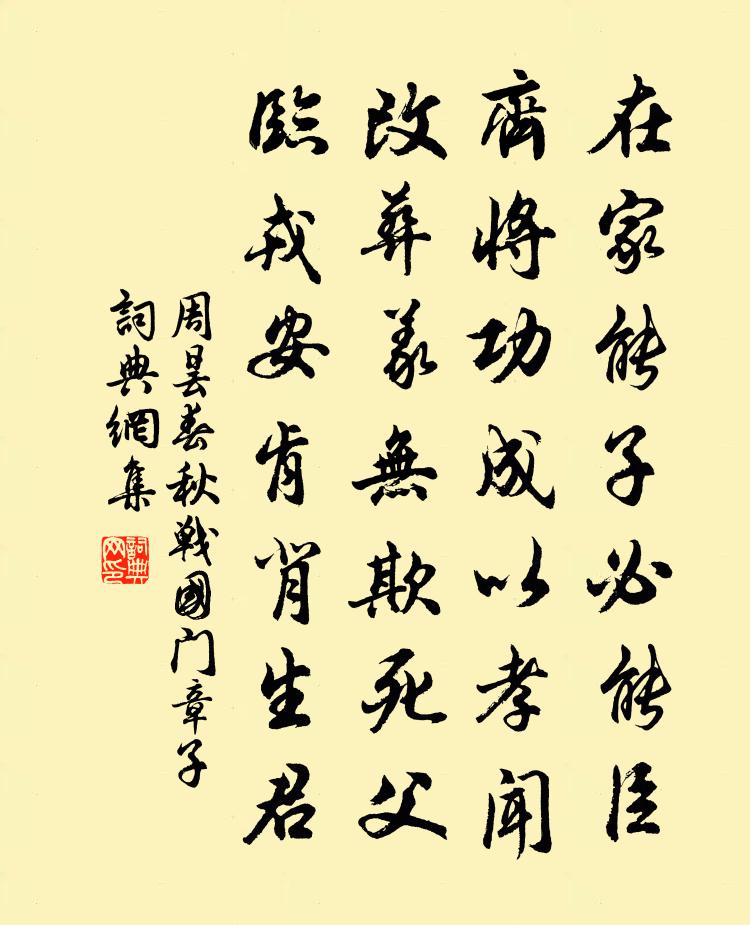 在家能子必能臣
齊將功成以孝聞
改葬義無欺死父
臨戎安肯背生君
周曇春秋戰國門章子
詞典網集
詞典網印